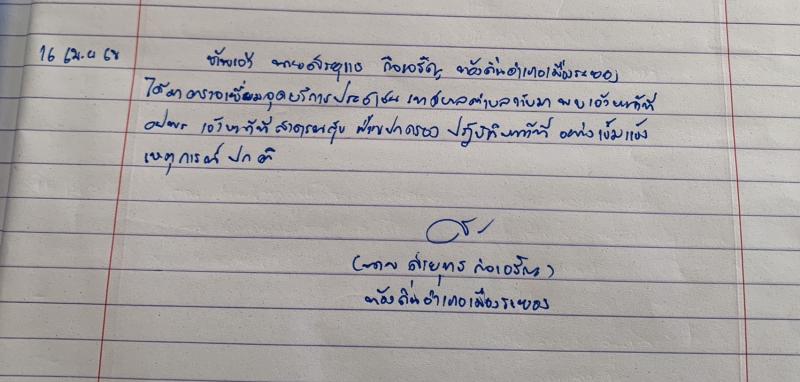 16 เม.ย 68 ข้าพเจ้า นาย กิจเจริญ ท้องถิ่นอำเภอเมืองระยอง
ได้มาตรวจเยี่ยมจุดบริการประชาชน เทศบาลตำบล พบเจ้าหน้าที่
อปพร เจ้าหน้าที่สาธารณสุข ฝ่ายปกครอง ปฏิบัติหน้าที่ อย่างเข้มแข็ง
เหตุการณ์ ปกติ
(นาย กิจเจริญ)
ท้องถิ่นอำเภอเมืองระยอง